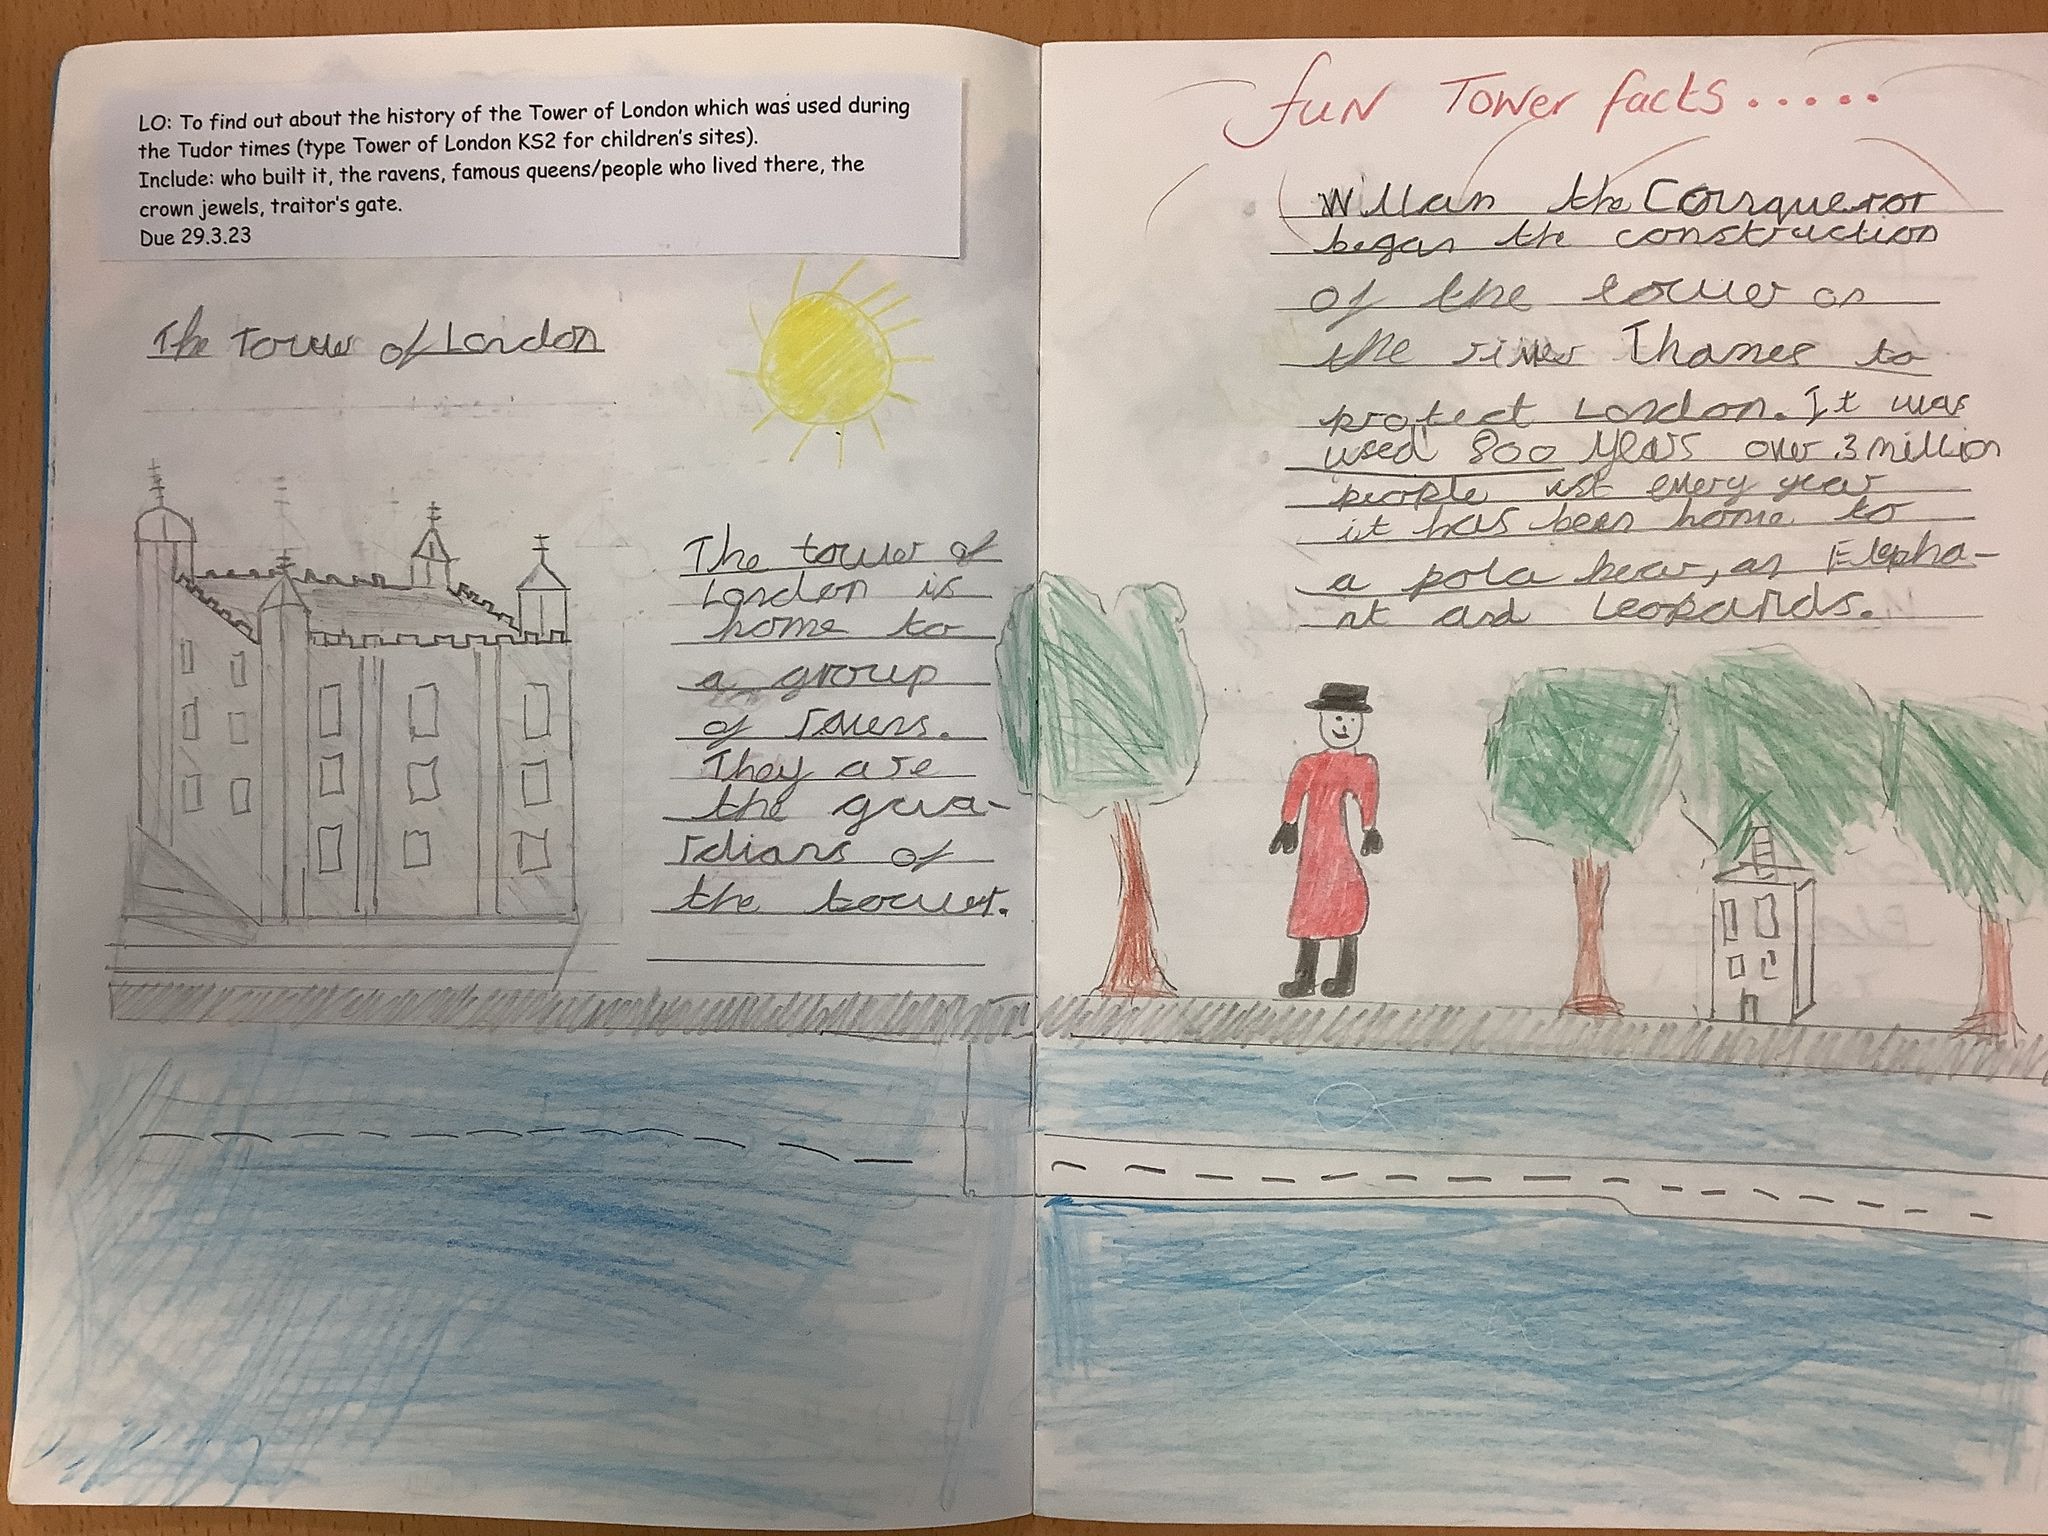 LO: To find out about the history of the Tower of London which was used during
the Tudor times (type Tower of London KS2 for children's sites).
Include: who built it, the ravens, famous queens/people who lived there, the
crown jewels, traitor's gate.
Due 29.3.23
The Tower of London
The tower of
London is
home to
a group
of ravens.
They are
the gua-
rdians of
the tower.
fun Tower facts.....
Willam the Conqueror
began the construction
of the tower on
the river Thames to
protect London. It was
used 800 years over 3 million
people vist every year
it has been home to
a pola bear, an Elepha-
nt and Leopards.